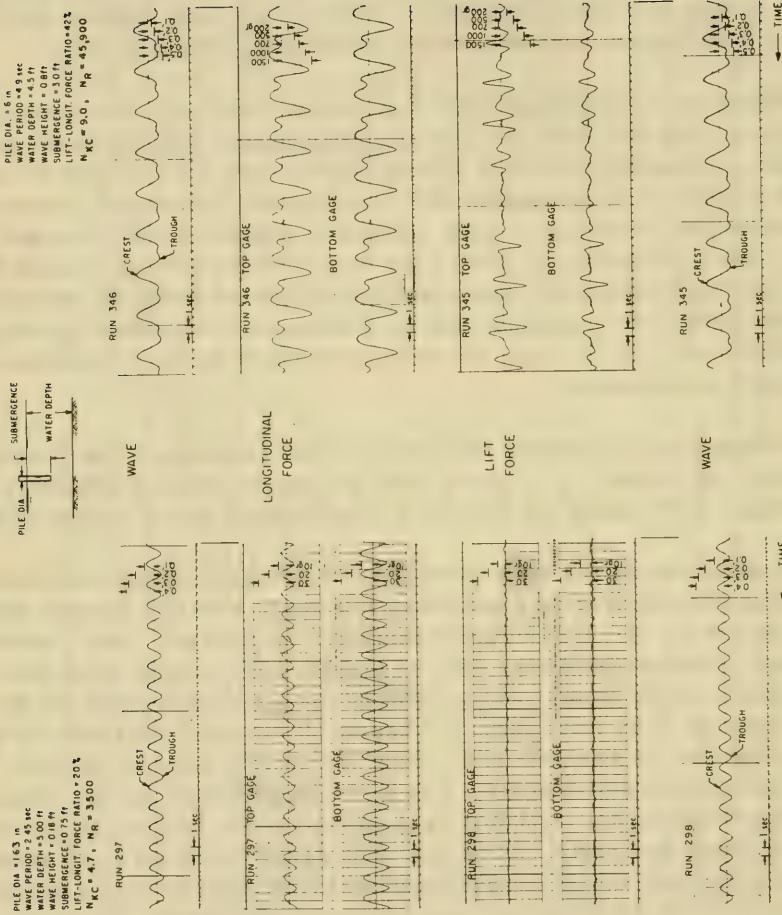 PILE DIA = 1.63 in
WAVE PERIOD = 2.45 sec
WATER DEPTH = 5.00 ft
WAVE HEIGHT = 0.18 ft
SUBMERGENCE = 0.75 ft
LIFT-LONGIT. FORCE RATIO = 20 %
N KC = 4.7 ; N R = 3500
RUN 297
CREST
TROUGH
0.1
0.2
0.3
0.4
1 sec
RUN 297 TOP GAGE
10gr
20
30
BOTTOM GAGE
10gr
20
30
1 sec
RUN 298 TOP GAGE
10gr
20
30
BOTTOM GAGE
10gr
20
30
1 sec
RUN 298
CREST
TROUGH
0.1
0.2
0.3
0.4
1 sec
TIME
PILE DIA
SUBMERGENCE
WATER DEPTH
WAVE
LONGITUDINAL
FORCE
LIFT
FORCE
WAVE
PILE DIA. = 6 in
WAVE PERIOD = 4.9 sec
WATER DEPTH = 4.5 ft
WAVE HEIGHT = 0.8 ft
SUBMERGENCE = 3.0 ft
LIFT-LONGIT. FORCE RATIO = 42%
N KC = 9.0 ; N R = 45,900
RUN 346
CREST
TROUGH
0.1
0.2
0.3
0.4
0.5
1 sec
RUN 346 TOP GAGE
200gr
500
700
1000
1500
BOTTOM GAGE
1 sec
RUN 345 TOP GAGE
200gr
500
700
1000
1500
BOTTOM GAGE
1 sec
RUN 345
CREST
TROUGH
0.1
0.2
0.3
0.4
0.5
1 sec
TIME